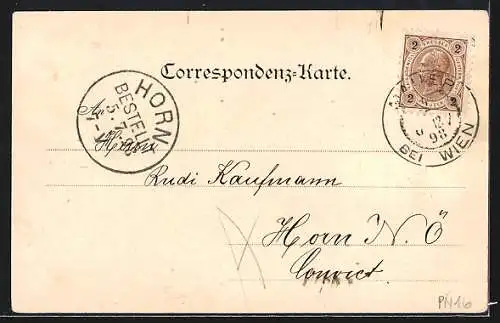 2 2
2 2
BEI WIEN
Correspondenz-Karte.
HORN
BESTELLT
An
Herrn
Rudi Kaufmann
Horn N. Ö
Convict
PN16